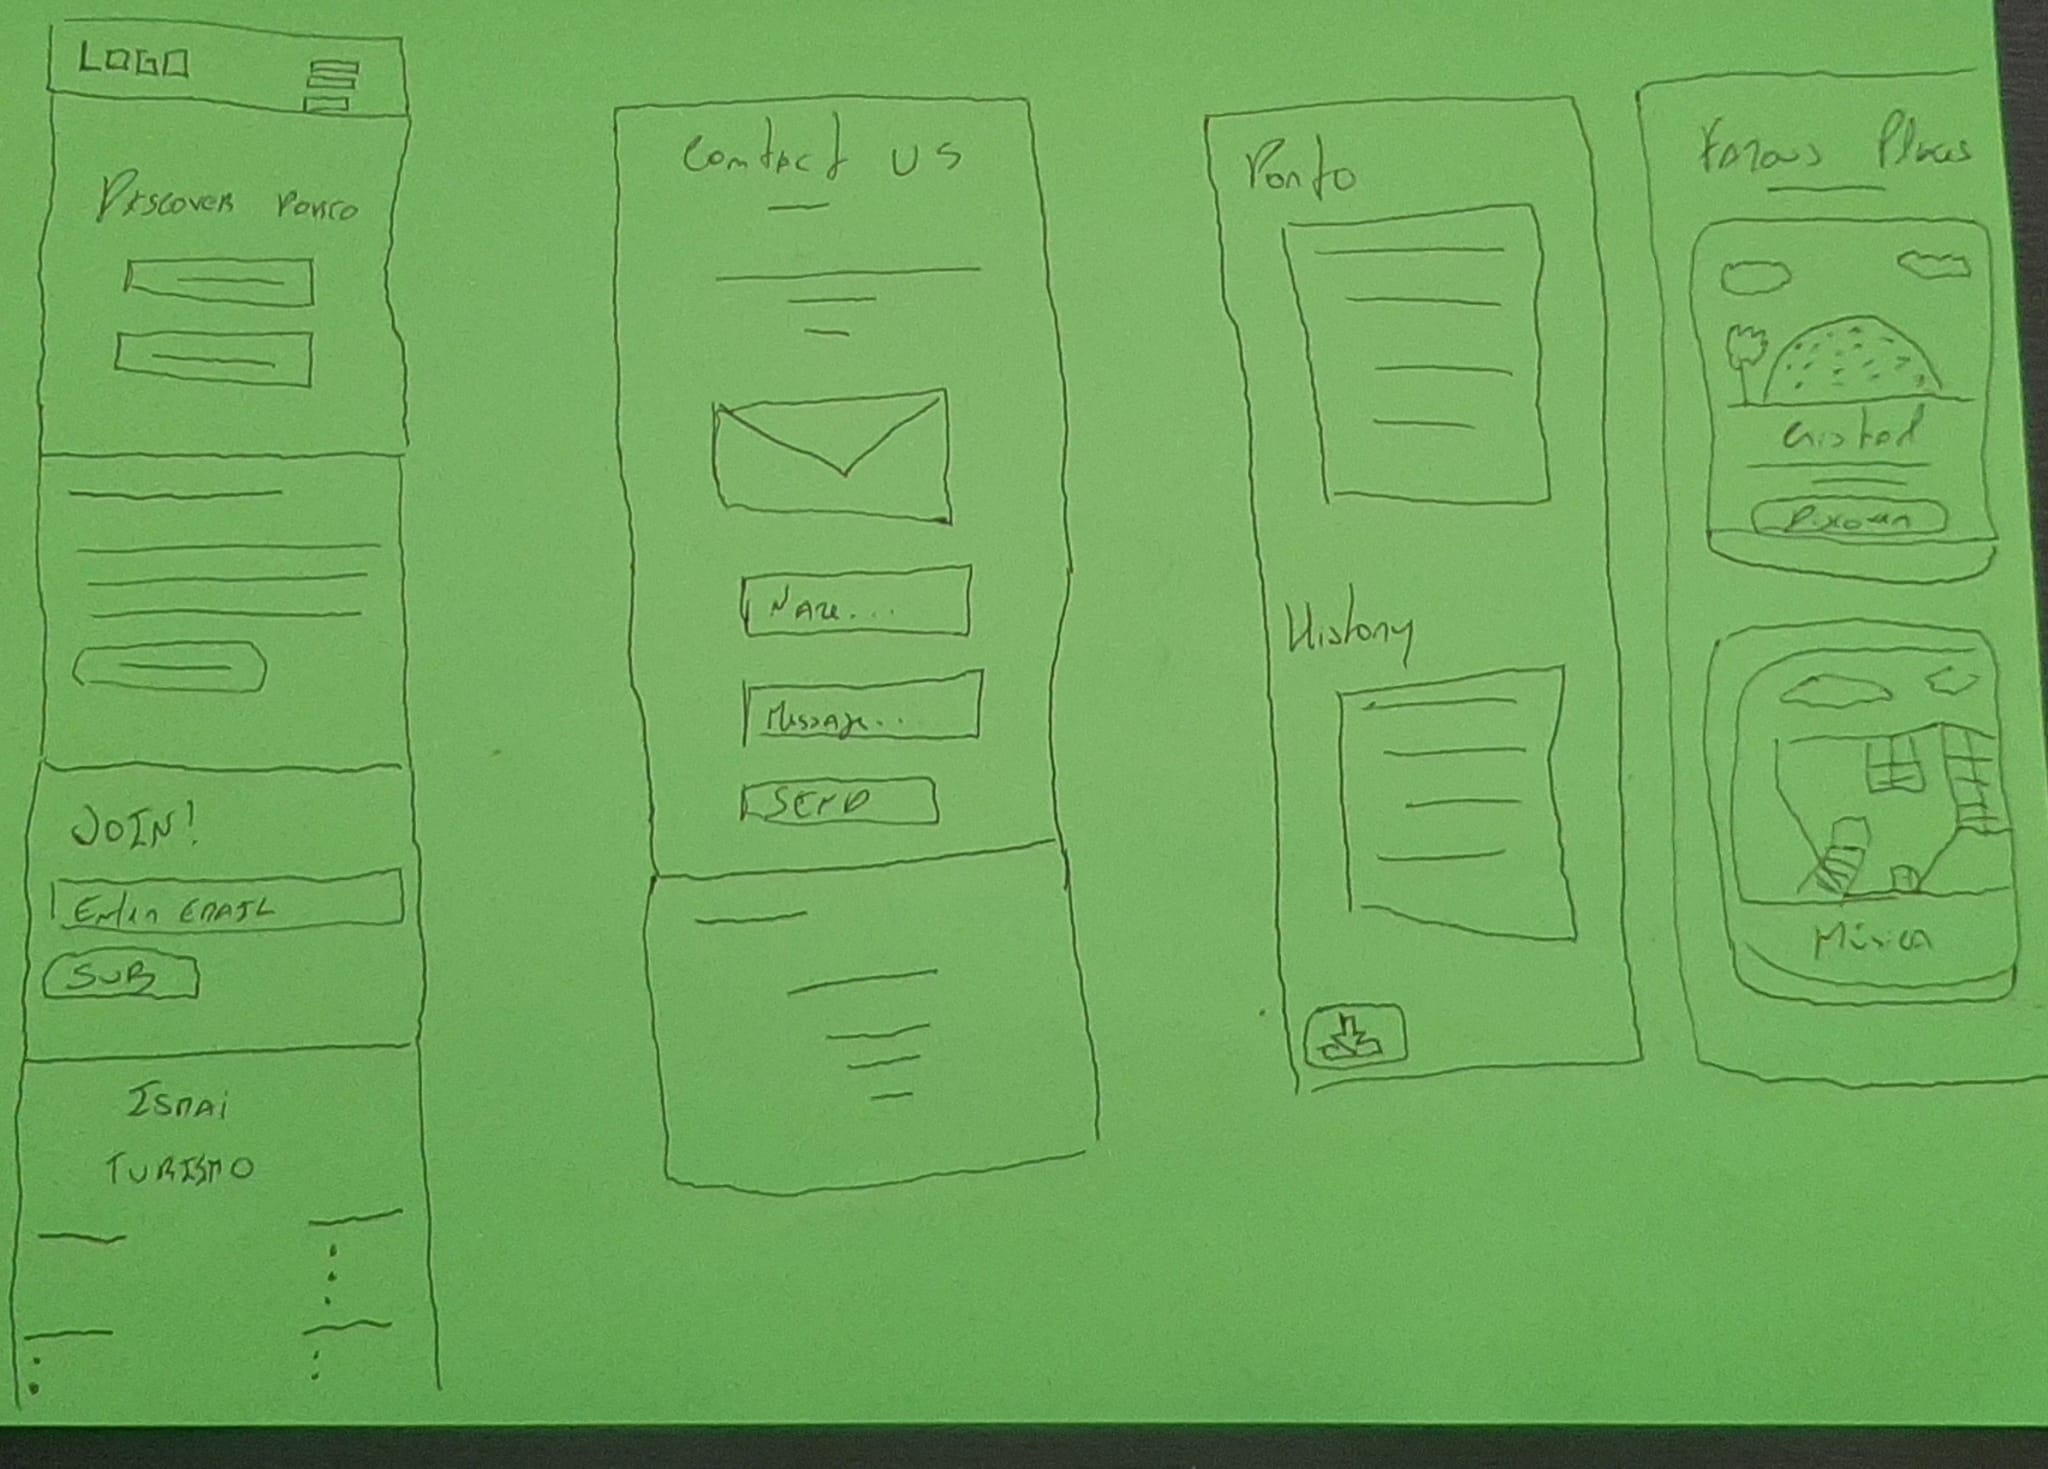 LOGO
DISCOVER PORTO
JOIN!
Enter EMAIL
SUB
ISMAI
TURISMO
Contact US
Name...
Message...
SEND
Porto
History
Famous Places
Cristal
Discover
Música